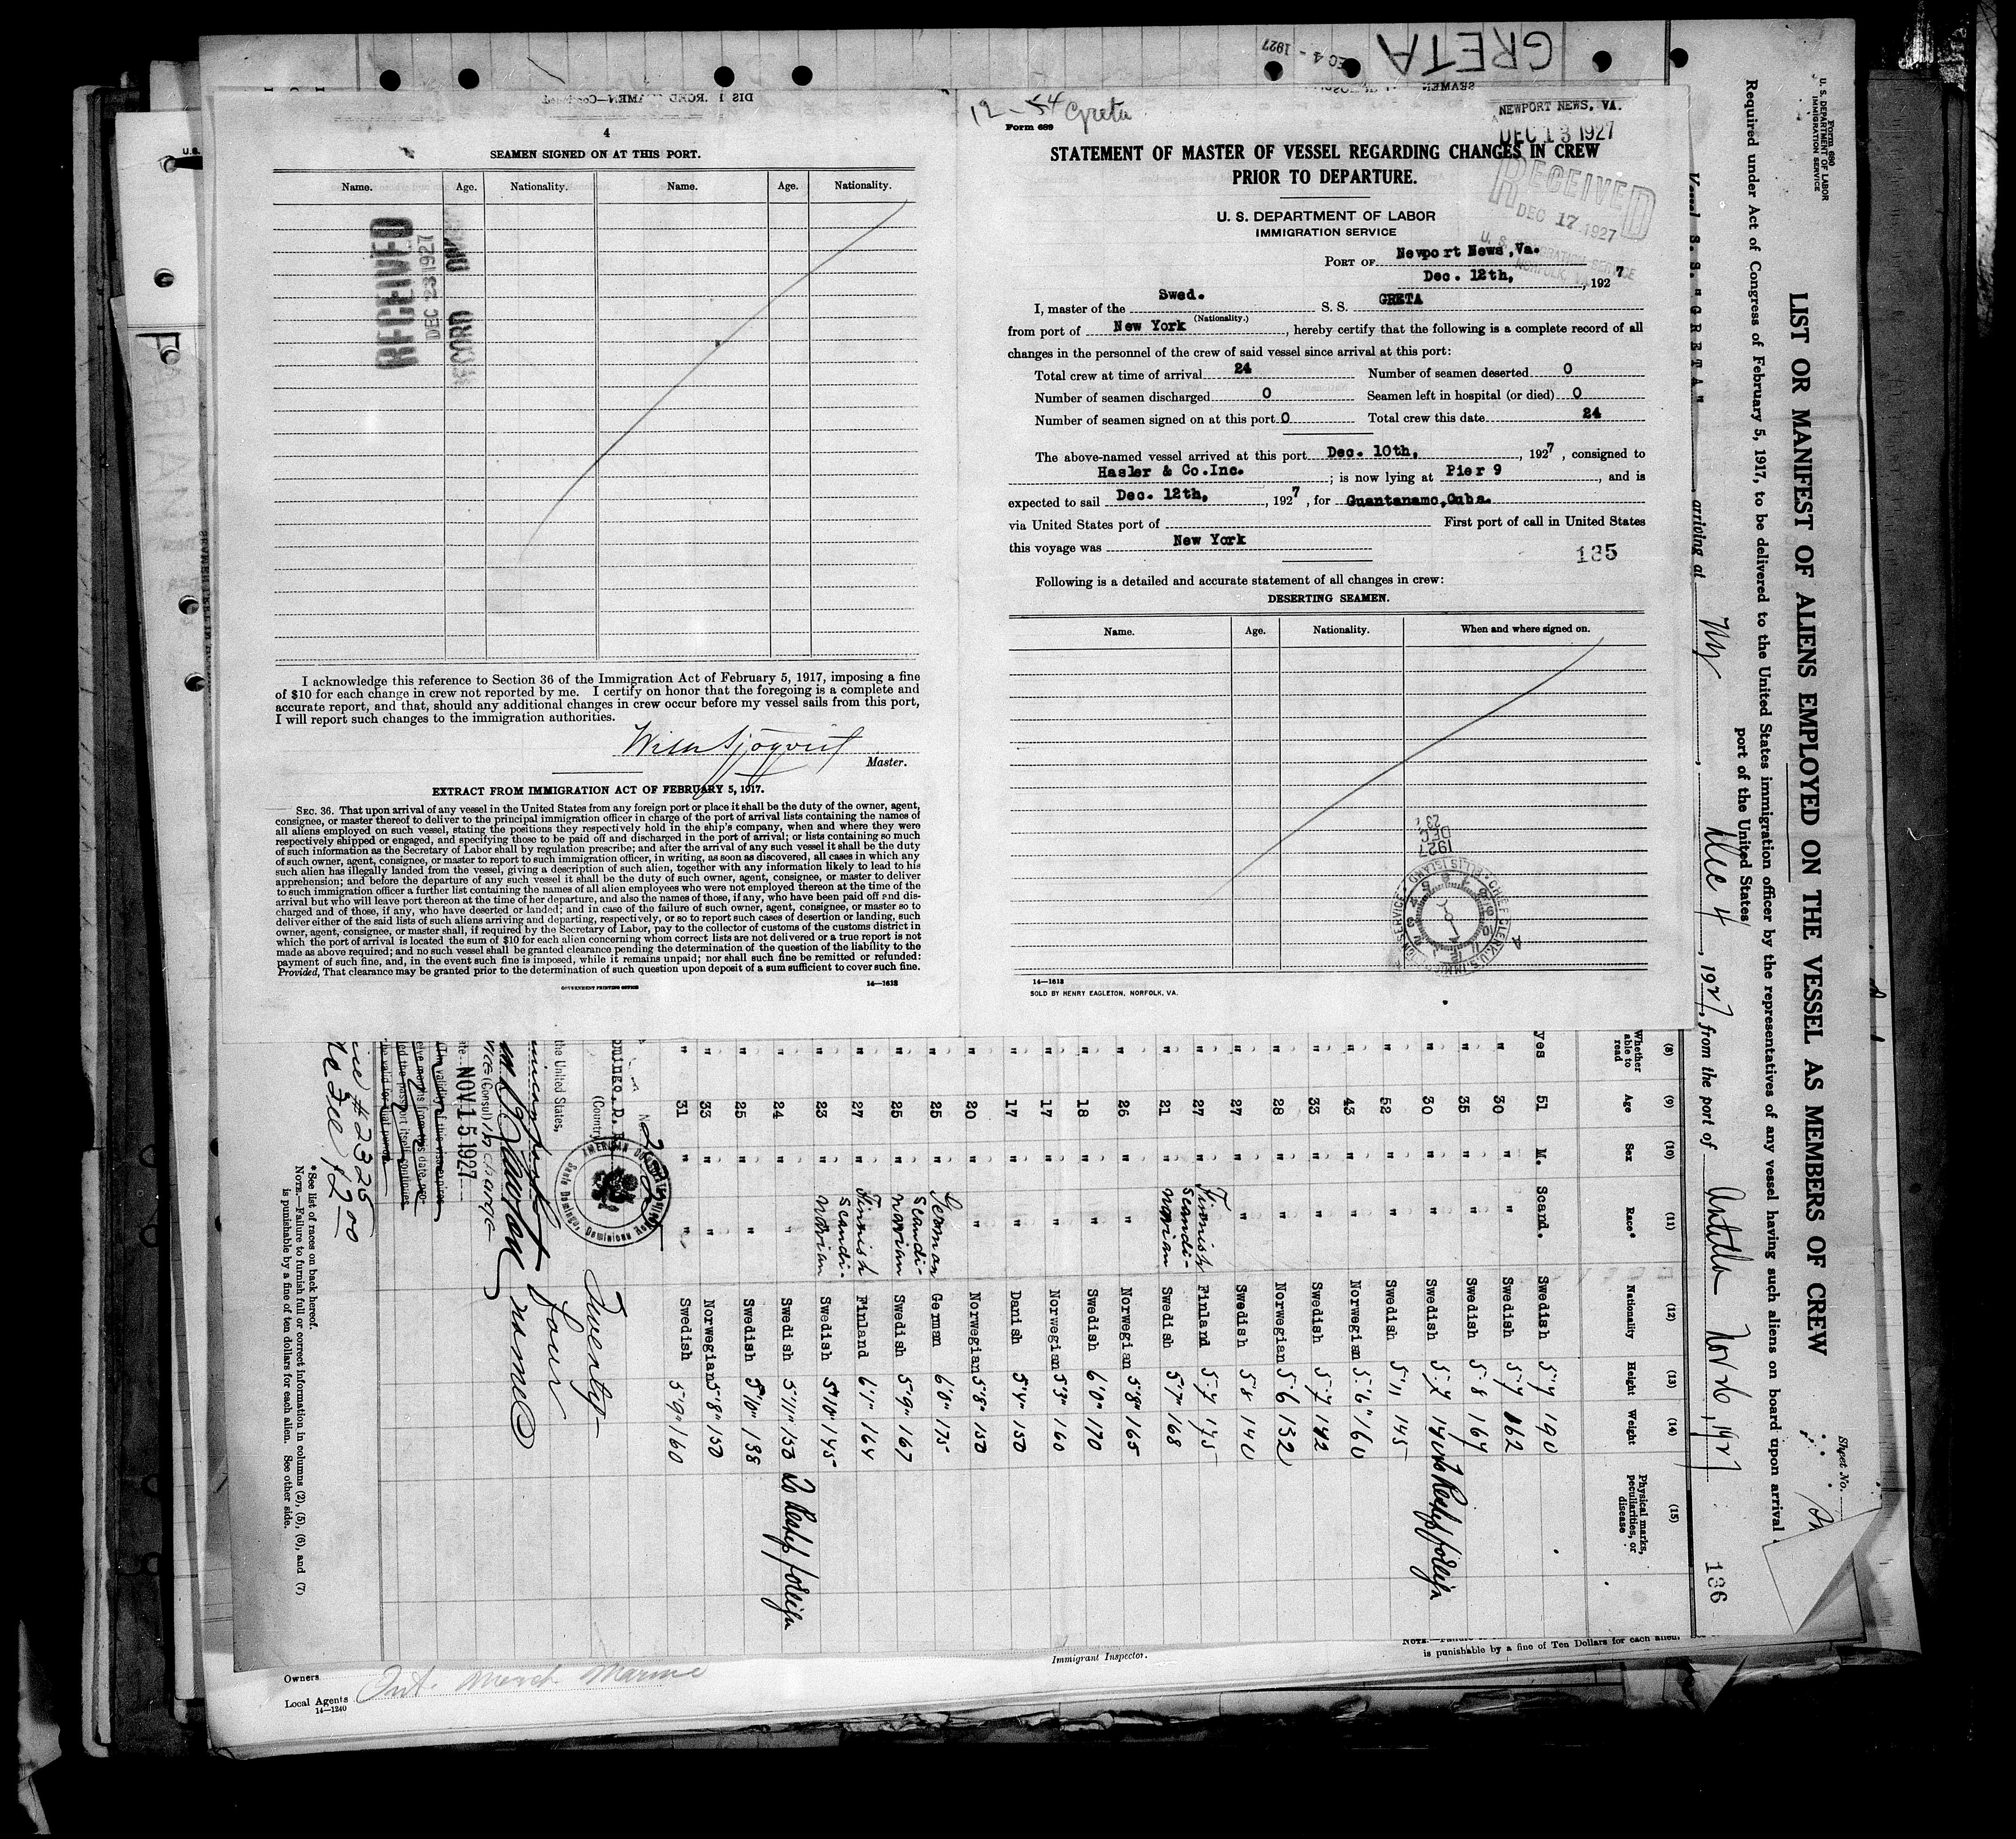 GRETA
DEC 4 - 1927
4
SEAMEN SIGNED ON AT THIS PORT.
Name. Age. Nationality. Name. Age. Nationality.
RECEIVED
DEC 23 1927
RECORD DIV
I acknowledge this reference to Section 36 of the Immigration Act of February 5, 1917, imposing a fine
of $10 for each change in crew not reported by me. I certify on honor that the foregoing is a complete and
accurate report, and that, should any additional changes in crew occur before my vessel sails from this port,
I will report such changes to the immigration authorities.
Master.
EXTRACT FROM IMMIGRATION ACT OF FEBRUARY 5, 1917.
SEC. 36. That upon arrival of any vessel in the United States from any foreign port or place it shall be the duty of the owner, agent,
consignee, or master thereof to deliver to the principal immigration officer in charge of the port of arrival lists containing the names of
all aliens employed on such vessel, stating the positions they respectively hold in the ship's company, when and where they were
respectively shipped or engaged, and specifying those to be paid off and discharged in the port of arrival; or lists containing so much
of such information as the Secretary of Labor shall by regulation prescribe; and after the arrival of any such vessel it shall be the duty
of such owner, agent, consignee, or master to report to such immigration officer, in writing, as soon as discovered, all cases in which any
such alien has illegally landed from the vessel, giving a description of such alien, together with any information likely to lead to his
apprehension; and before the departure of any such vessel it shall be the duty of such owner, agent, consignee, or master to deliver
to such immigration officer a further list containing the names of all alien employees who were not employed thereon at the time of the
arrival but who will leave port thereon at the time of her departure, and also the names of those, if any, who have been paid off and dis-
charged and of those, if any, who have deserted or landed; and in case of the failure of such owner, agent, consignee, or master so to
deliver either of the said lists of such aliens arriving and departing, respectively, or so to report such cases of desertion or landing, such
owner, agent, consignee, or master shall, if required by the Secretary of Labor, pay to the collector of customs of the customs district in
which the port of arrival is located the sum of $10 for each alien concerning whom correct lists are not delivered or a true report is not
made as above required; and no such vessel shall be granted clearance pending the determination of the question of the liability to the
payment of such fine, and, in the event such fine is imposed, while it remains unpaid; nor shall such fine be remitted or refunded:
Provided, That clearance may be granted prior to the determination of such question upon deposit of a sum sufficient to cover such fine.
GOVERNMENT PRINTING OFFICE 14—1618
12 - 54 Greta
Form 689
NEWPORT NEWS, VA.
DEC 13 1927
STATEMENT OF MASTER OF VESSEL REGARDING CHANGES IN CREW
PRIOR TO DEPARTURE.
RECEIVED
DEC 17 1927
U. S. IMMIGRATION SERVICE
NORFOLK,
U. S. DEPARTMENT OF LABOR
IMMIGRATION SERVICE
PORT OF Newport News, Va.
Dec. 12th, , 1927
I, master of the Swed. S. S. GRETA
(Nationality.)
from port of New York , hereby certify that the following is a complete record of all
changes in the personnel of the crew of said vessel since arrival at this port:
Total crew at time of arrival 24 Number of seamen deserted 0
Number of seamen discharged 0 Seamen left in hospital (or died) 0
Number of seamen signed on at this port 0 Total crew this date 24
The above-named vessel arrived at this port Dec. 10th, , 1927 , consigned to
Hasler & Co.Inc. ; is now lying at Pier 9 , and is
expected to sail Dec. 12th, , 1927 , for Guantanamo,Cuba.
via United States port of First port of call in United States
this voyage was New York
135
Following is a detailed and accurate statement of all changes in crew:
DESERTING SEAMEN.
Name. Age. Nationality. When and where signed on.
1927
DEC
23
CHIEF CLERK, U. S. IMMIGRATION SERVICE ELLIS ISLAND
14—1618
SOLD BY HENRY EAGLETON, NORFOLK, VA.
Form 680
U. S. DEPARTMENT OF LABOR
IMMIGRATION SERVICE
Sheet No.
LIST OR MANIFEST OF ALIENS EMPLOYED ON THE VESSEL AS MEMBERS OF CREW
Required under Act of Congress of February 5, 1917, to be delivered to the United States immigration officer by the representatives of any vessel having such aliens on board upon arrival
port of the United States
Vessel S.S. "GRETA" , arriving at NY , Dec 4 , 1927, from the port of Antilla Nov 26, 1927
136
(8) Whether able to read (9) Age (10) Sex (11) Race* (12) Nationality (13) Height (14) Weight (15) Physical marks, peculiarities, or disease
yes 51 M. Scand. Swedish 5'7 190
" 30 " " Swedish 5-7 162
" 35 " " Swedish 5-8 164
" 30 " " Swedish 5-7 140 to Reship foreign
" 52 " " Swedish 5'11 145
" 43 " " Norwegian 5'6" 160
" 33 " " Swedish 5-7 142
" 28 " " Norwegian 5-6 132
" 27 " " Swedish 5'8 140
" 27 " Finnish Finland 5-7 175
" 21 " Scandinavian Swedish 5'7" 168
" 26 " " Norwegian 5'8" 165
" 18 " " Swedish 6'0" 170
" 17 " " Norwegian 5'3" 160
" 17 " " Danish 5'4" 150
" 20 " " Norwegian 5'8" 150
" 25 " German German 6'0" 175
" 25 " Scandinavian Swedish 5'9" 167
" 27 " Finnish Finland 6'1" 164
" 23 " Scandinavian Swedish 5'10" 145
" 24 " " Swedish 5'11" 150 To Reship foreign
" 25 " " Swedish 5'10" 138
" 33 " " Norwegian 5'8" 150
" 31 " " Swedish 5'9" 160
No.
omingo, D. R.
(Country)
AMERICAN CONSULATE
Santo Domingo, Dominican Republic
the United States,
Twenty-
four
names
Vice (Consul) in charge
NOV 15 1927
The validity of this visa expires
# 2325
Fee $2.00
*See list of races on back hereof.
NOTE.—Failure to furnish full or correct information in columns (2), (5), (6), and (7)
is punishable by a fine of ten dollars for each alien. See other side.
Immigrant Inspector.
is punishable by a fine of Ten Dollars for each alien.
Owners
Local Agents Int. Merch. Marine
14—1240